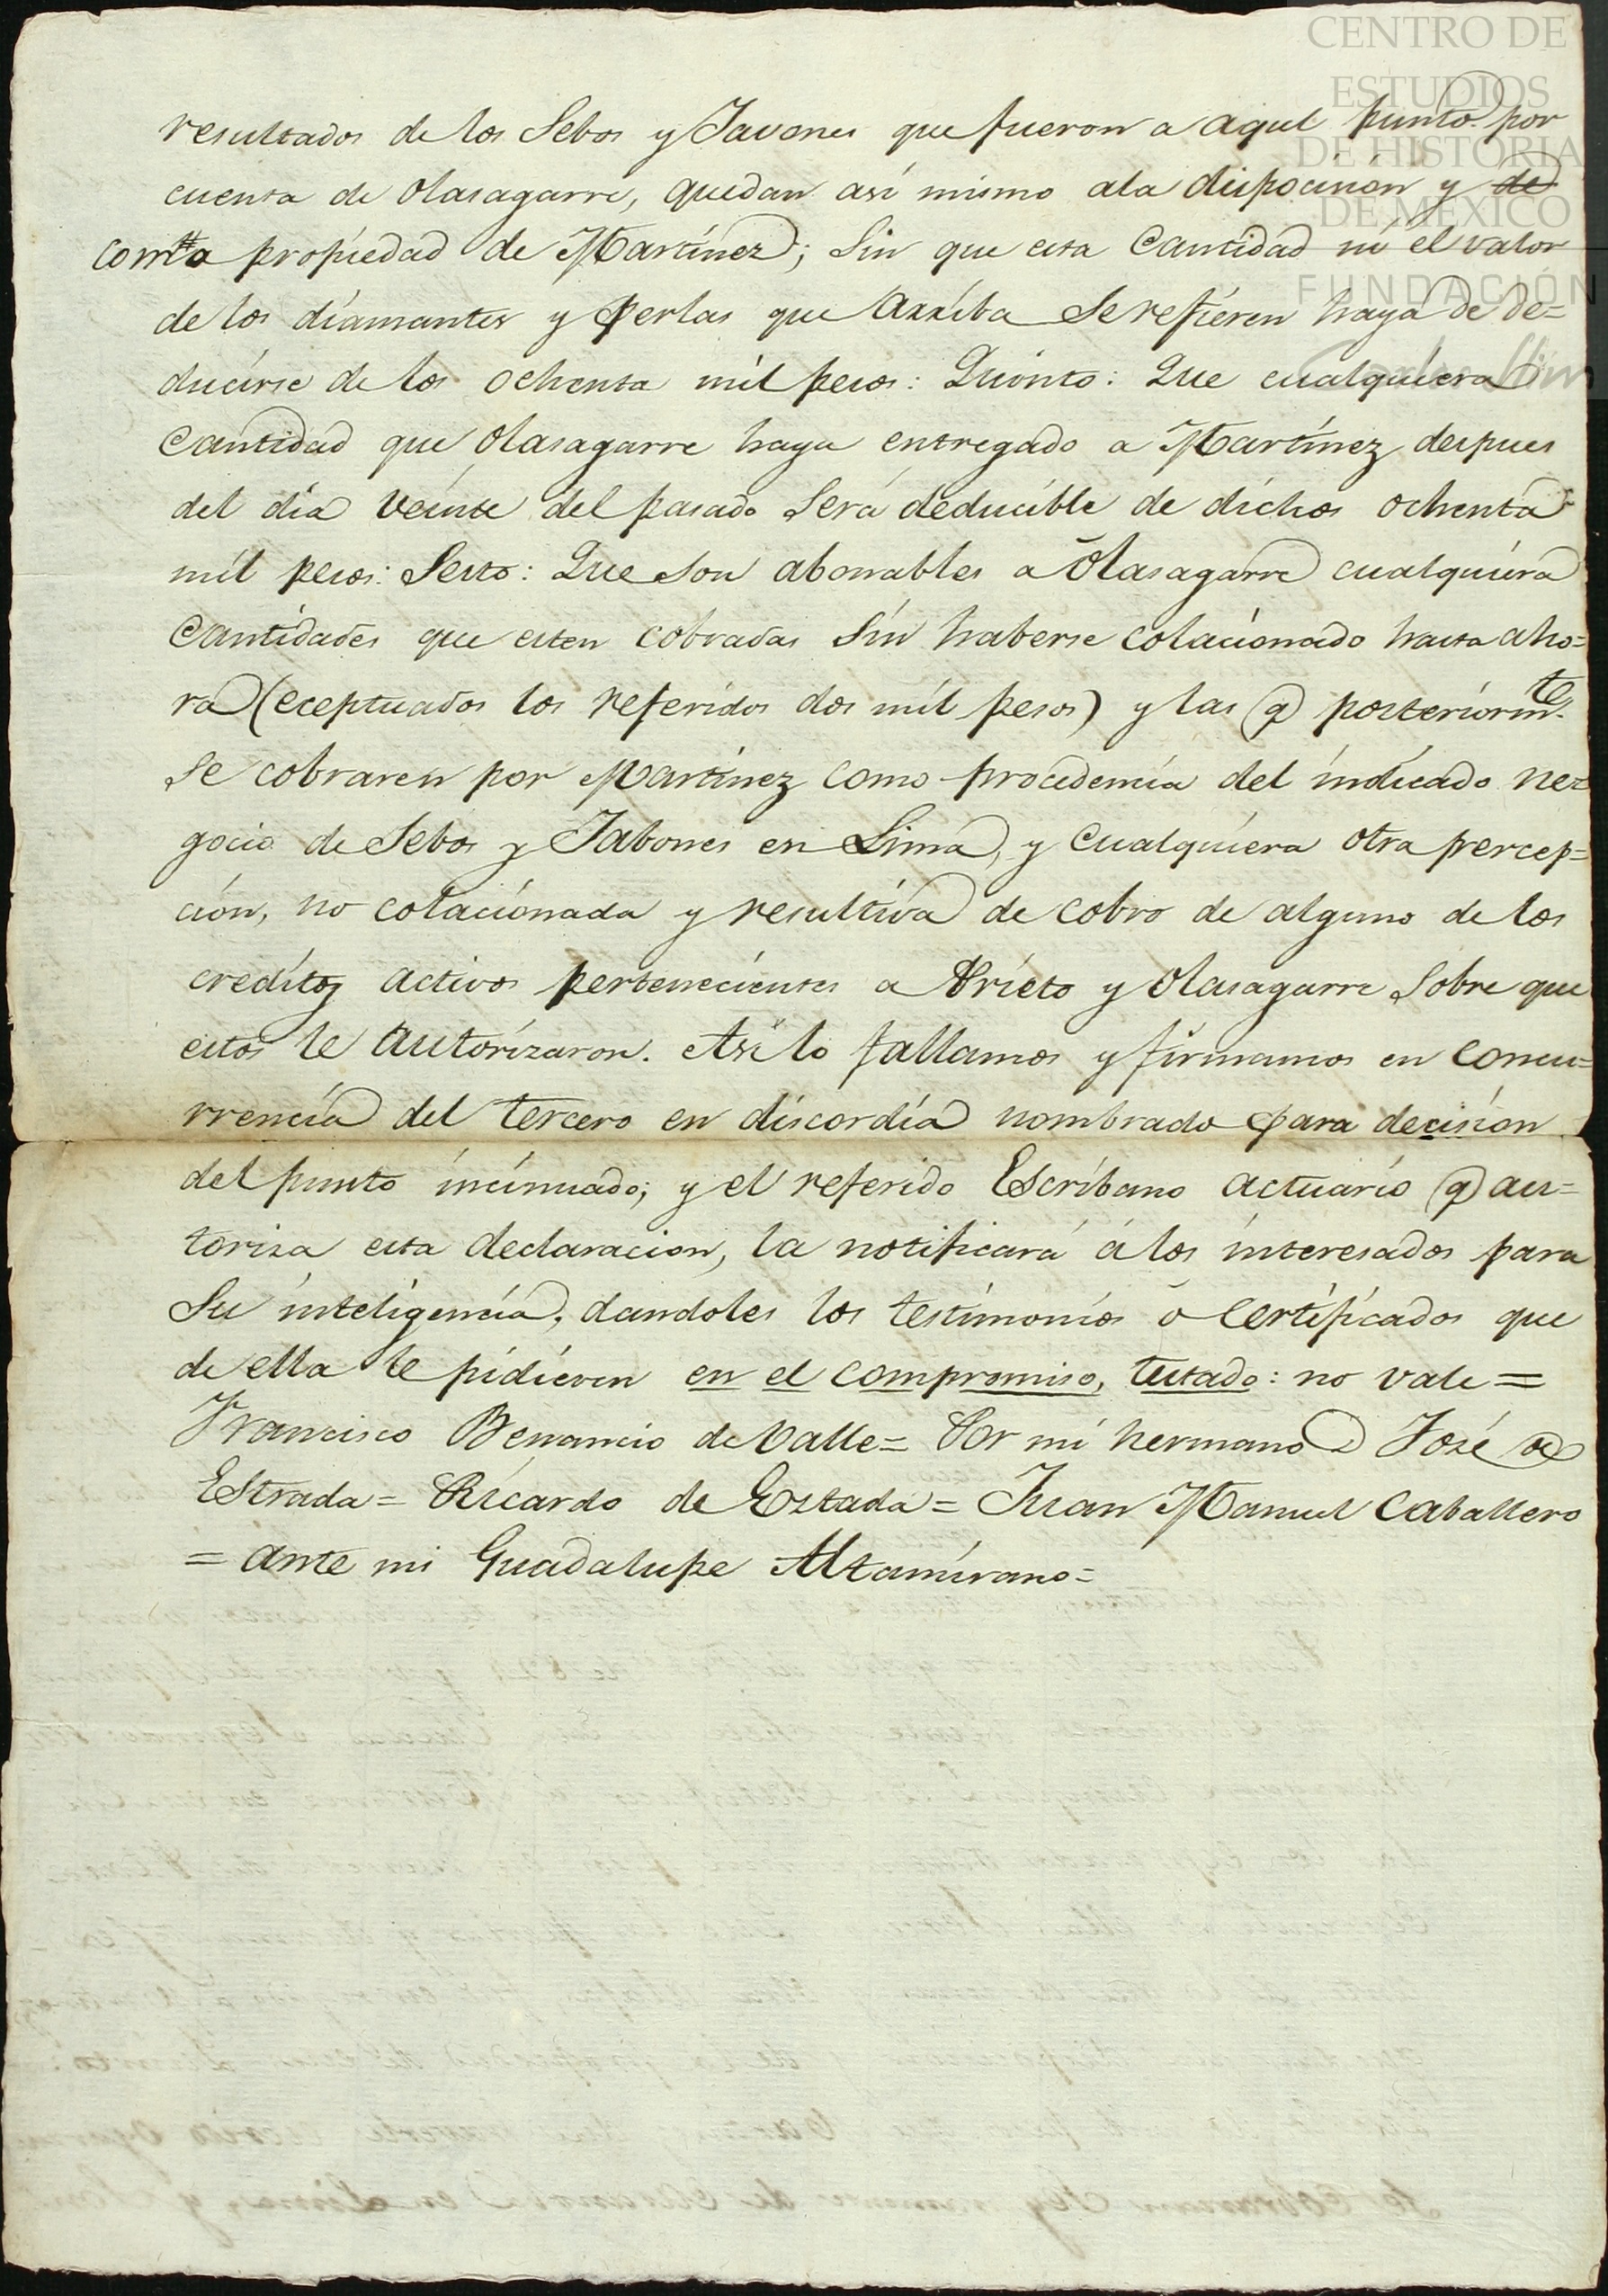 CENTRO DE
ESTUDIOS
DE HISTORIA
DE MÉXICO
FUNDACIÓN
resultados de los Sebos y Javones que fueron a aquel punto por
cuenta de Olasagarre, quedan así mismo ala disposicion y de
propiedad de Martínez; Sin que esta Cantidad ni él valor
de los díamantes y perlas que Arriba Serefieren haya de de=
ducirse de los ochenta mil pesos: Quinto: Que cualquíera
Cantidad que Olasagarre haya entregado a Martínez despues
del día Veinte del pasado Será deducible de dichos ochenta
mil pesos: Sesto: Que son abonables a Olasagarre cualquiera
Cantidades que esten cobradas Sín haberse colacionado hasta aho=
ra (eceptuados los referidos dos mil pesos) y las q posteriormte.
Se cobraren por Martínez como procedencia del índicado ne=
gocio de Sebos y Jabones en Lima, y Cualquíera otra percep=
ción, no colacíonada y resultiva de cobro de alguno de los
creditos activos pertenecientes a Prieto y Olasagarre Sobre que
estos le autorízaron. Asi lo fallamos y firmamos en concu=
rrencía del tercero en discordía nombrado para decision
del punto incinuado; y el referido Escríbano actuario q au=
toriza esta declaracion, la notificará á los interesados para
Su inteligencia, dandoles los testimonios o Certificados que
de ella le pidieren en el compromiso, testado: no vale=
Francisco Benancio de Valle= Por mi hermano D José de
Estrada= Ricardo de Estada= Juan Manuel Caballero
= Ante mi Guadalupe Altamírano=